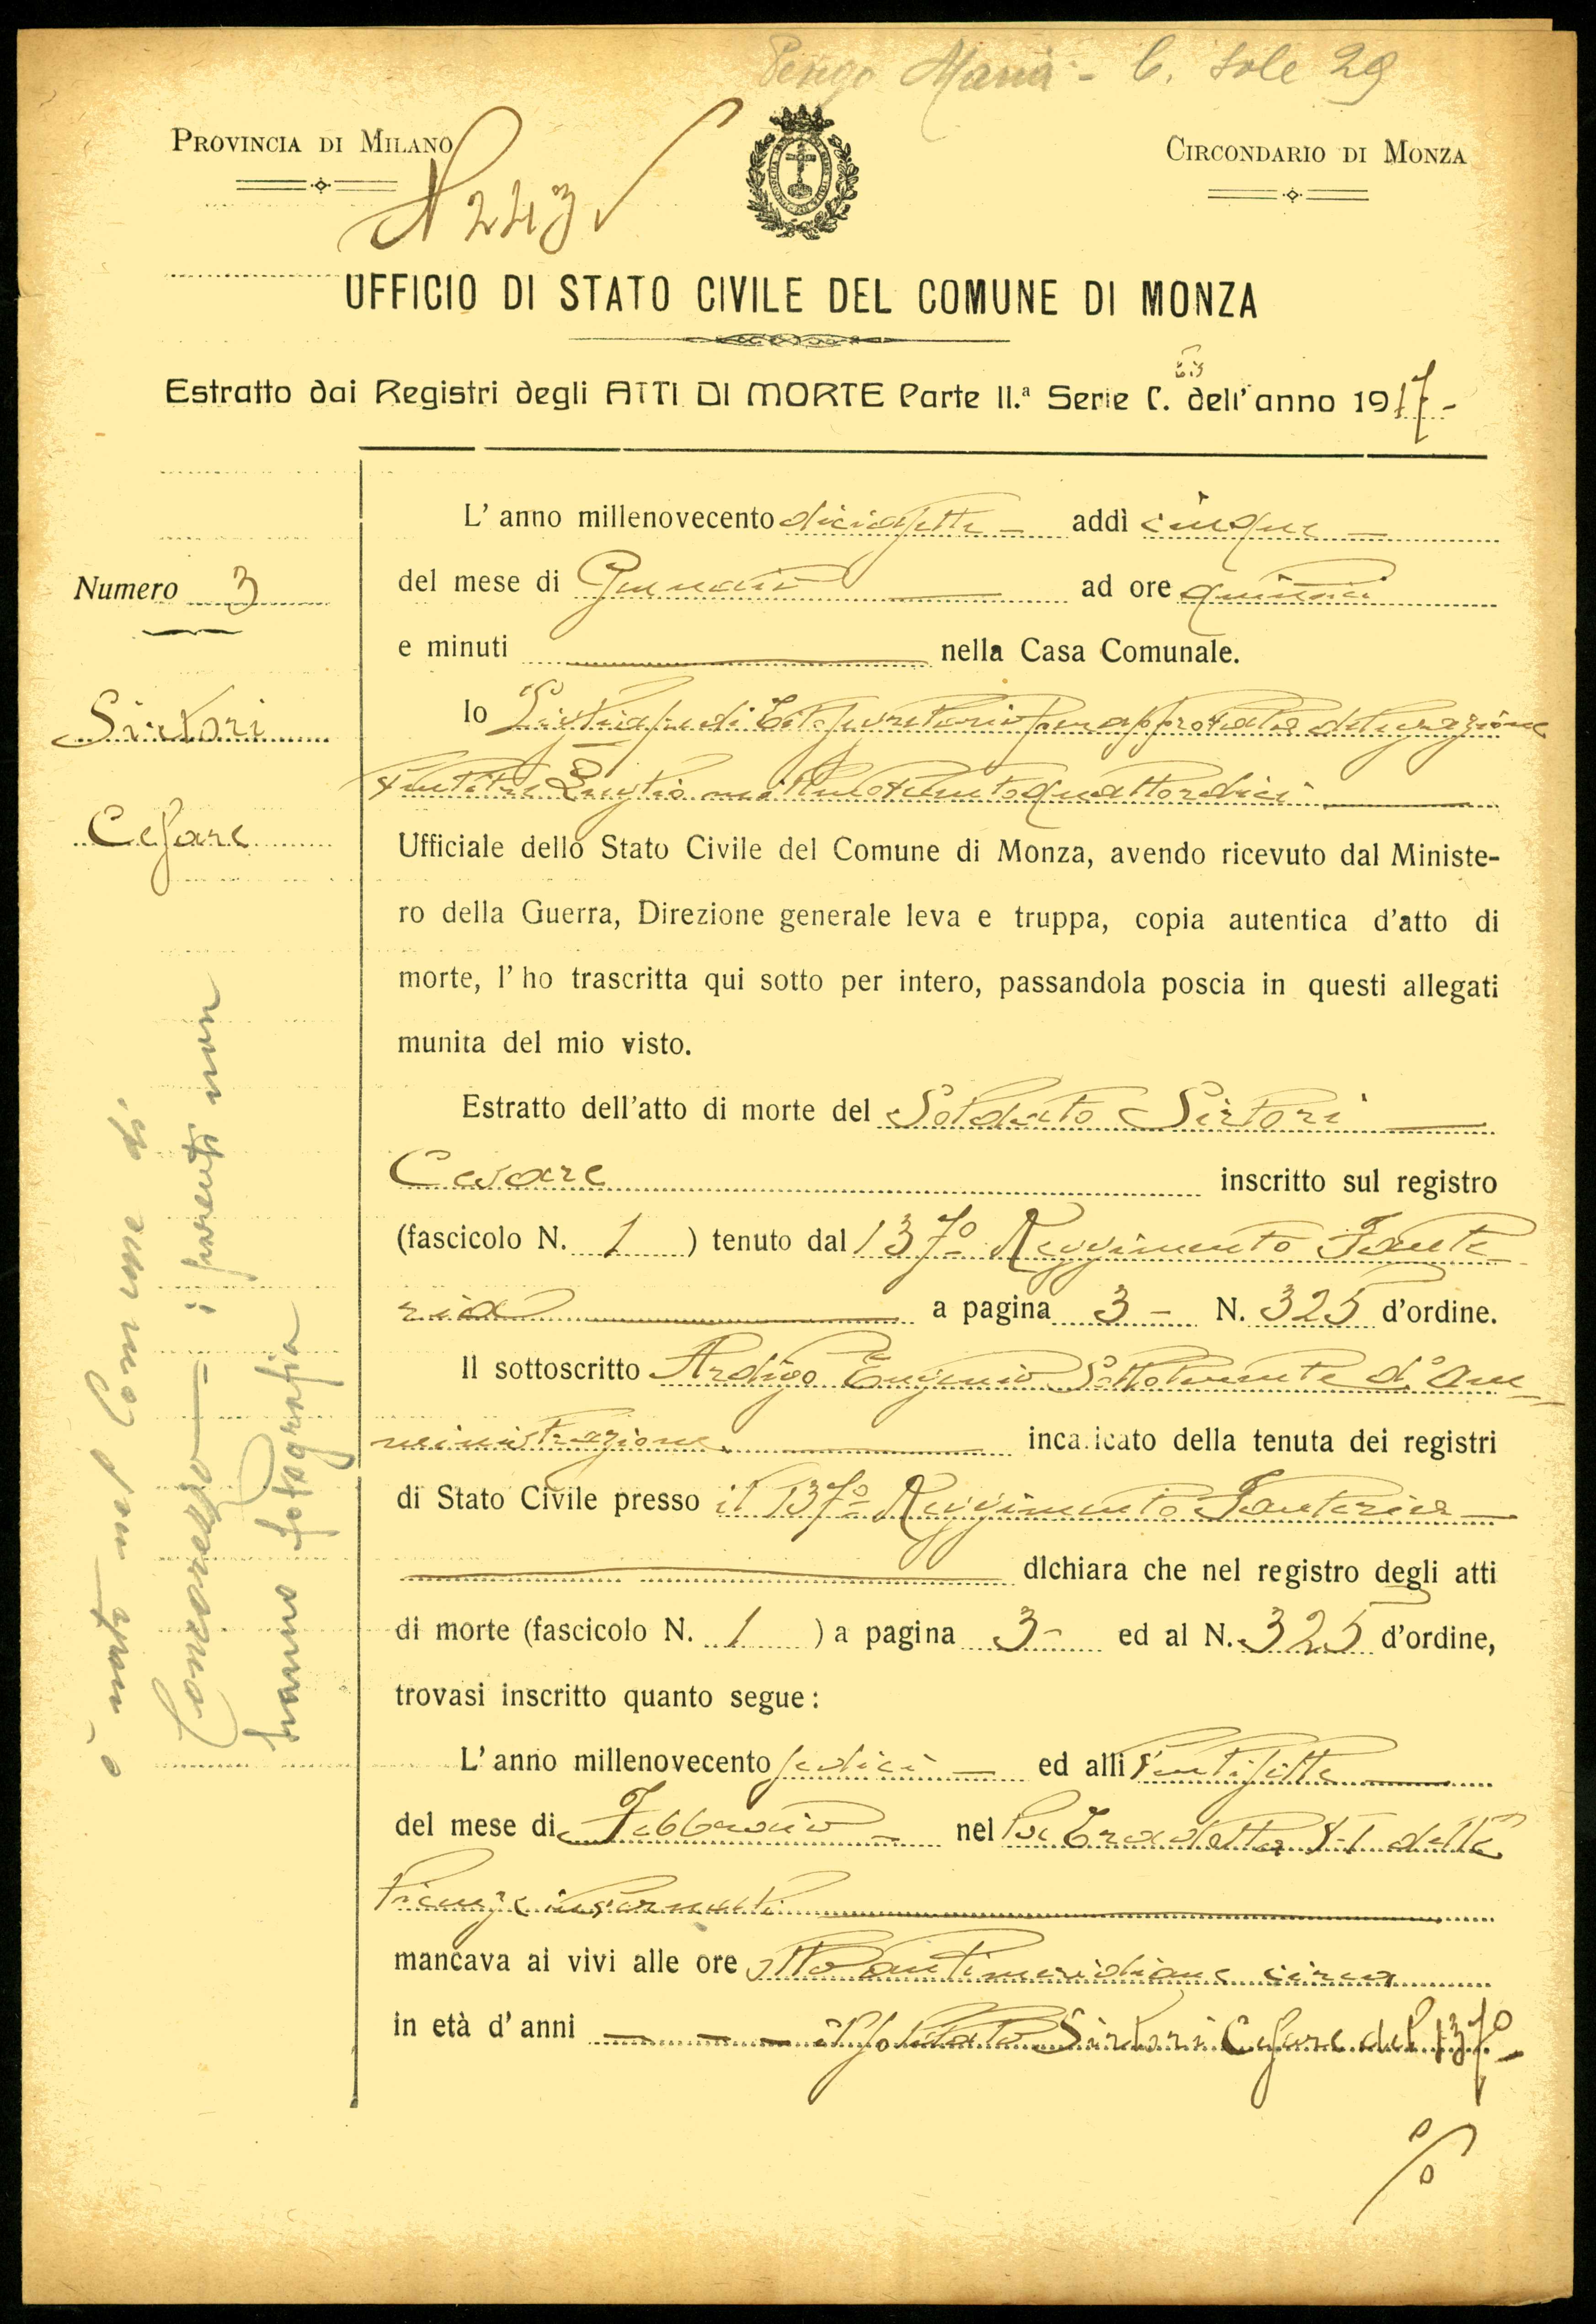 Pengo Maria - C. Sole 29
PROVINCIA DI MILANO
CIRCONDARIO DI MONZA
N 243
UFFICIO DI STATO CIVILE DEL COMUNE DI MONZA
bis
Estratto dai Registri degli ATTI DI MORTE Parte II.ª Serie C. dell'anno 1917-
L'anno millenovecento diciasette addì cinque
Numero 3
del mese di Gennaio ad ore quindici
e minuti nella Casa Comunale.
Sirtori
Io Segretario per approvata delegazione
Cesare
ventitre Luglio millenovecentoquattordici
Ufficiale dello Stato Civile del Comune di Monza, avendo ricevuto dal Ministe-
ro della Guerra, Direzione generale leva e truppa, copia autentica d'atto di
morte, l'ho trascritta qui sotto per intero, passandola poscia in questi allegati
munita del mio visto.
Estratto dell'atto di morte del Soldato Sirtori
Cesare inscritto sul registro
(fascicolo N. 1 ) tenuto dal 137º Reggimento Fante-
ria a pagina 3 - N. 325 d'ordine.
Il sottoscritto Ardigo Eugenio Sottotenente d'am-
ministrazione incaricato della tenuta dei registri
di Stato Civile presso il 137º Reggimento Fanteria
dIchiara che nel registro degli atti
di morte (fascicolo N. 1 ) a pagina 3- ed al N. 325 d'ordine,
trovasi inscritto quanto segue:
L'anno millenovecento sedici ed alli ventisette
del mese di Febbraio nel
mancava ai vivi alle ore otto antimeridiane circa
in età d'anni il soldato Sirtori Cesare del 137º
è nato nel Comune di
Concorezzo = i parenti non
hanno fotografia